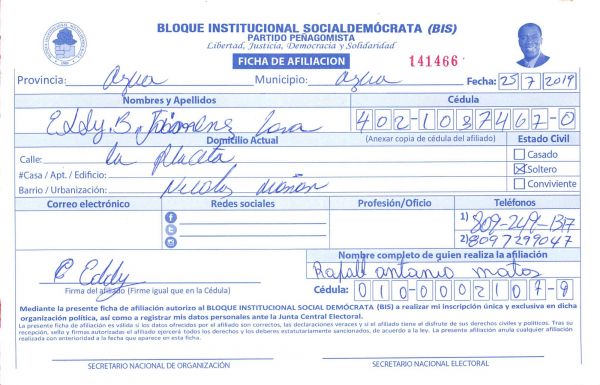 BLOQUE INSTITUCIONAL SOCIALDEMÓCRATA (BIS)
PARTIDO PEÑAGOMISTA
Libertad, Justicia, Democracia y Solidaridad
FICHA DE AFILIACION 141466
Provincia: Azua Municipio: Azua Fecha: 25/7/2019
Nombres y Apellidos Cédula
Eddy. B. Jimenez 402-1087467-0
Domicilio Actual (Anexar copia de cédula del afiliado) Estado Civil
Calle: la placeta Casado
#Casa / Apt. / Edificio: Soltero
Barrio / Urbanización: Nicolas Conviviente
Correo electrónico Redes sociales Profesión/Oficio Teléfonos
1) 809-249-1317
2) 809 7299047
Nombre completo de quien realiza la afiliación
Eddy Rafael antonio matos
Firma del afiliado (Firme igual que en la Cédula) Cédula: 010-0002107-9
Mediante la presente ficha de afiliación autorizo al BLOQUE INSTITUCIONAL SOCIAL DEMÓCRATA (BIS) a realizar mi inscripción única y exclusiva en dicha
organización política, así como a registrar mis datos personales ante la Junta Central Electoral.
La presente ficha de afiliación es válida si los datos ofrecidos por el afiliado son correctos, las declaraciones veraces y si el afiliado tiene el disfrute de sus derechos civiles y políticos. Tras su
recepción, sello y firmas autorizadas el afiliado ejercerá todos los derechos y los deberes estatutariamente sancionados, de acuerdo a la ley. La presente afiliación anula cualquier afiliación
realizada con anterioridad a la fecha que aparece en esta ficha.
SECRETARIO NACIONAL DE ORGANIZACIÓN SECRETARIO NACIONAL ELECTORAL